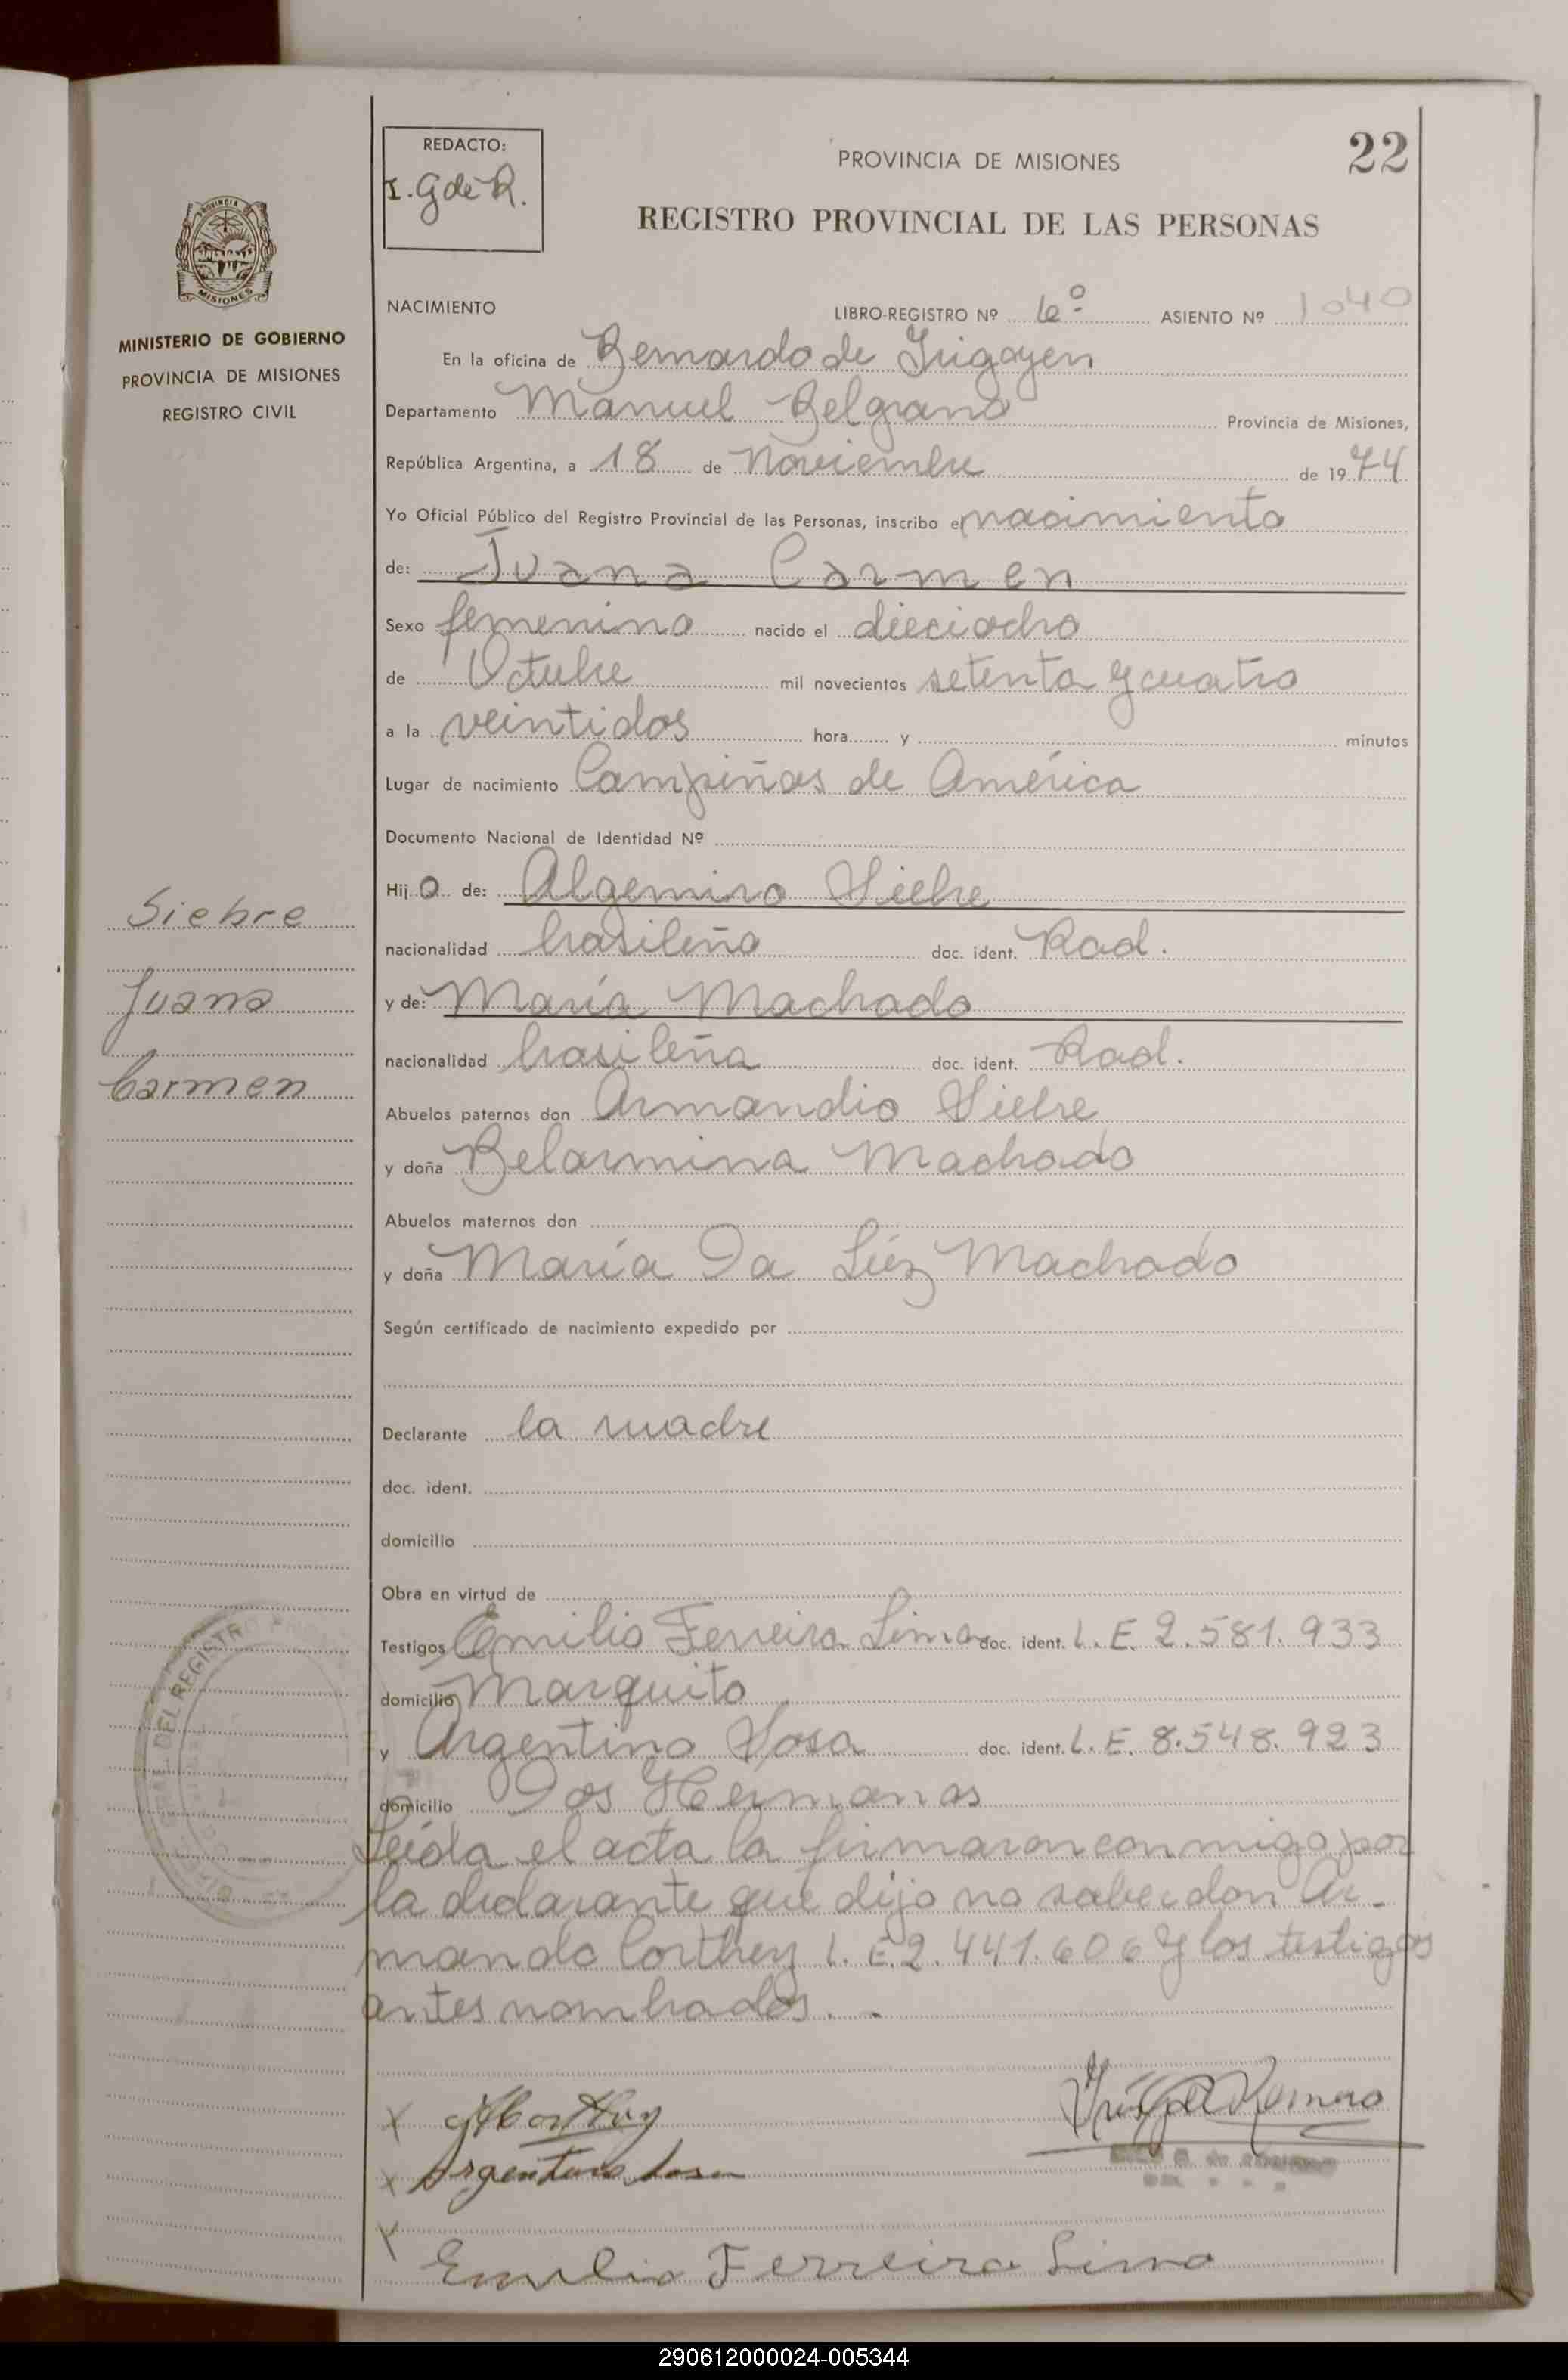 22
REDACTO:
I. G de R.
PROVINCIA DE MISIONES
REGISTRO PROVINCIAL DE LAS PERSONAS
PROVINCIA DE
MISIONES
MINISTERIO DE GOBIERNO
PROVINCIA DE MISIONES
REGISTRO CIVIL
NACIMIENTO LIBRO-REGISTRO Nº 6º ASIENTO Nº 1040
En la oficina de Bernardo de Irigoyen
Departamento Manuel Belgrano Provincia de Misiones,
República Argentina, a 18 de Noviembre de 1974
Yo Oficial Público del Registro Provincial de las Personas, inscribo el nacimiento
de: Juana Carmen
Sexo femenino nacido el dieciocho
de Octubre mil novecientos setenta y cuatro
a la veintidos hora y minutos
Lugar de nacimiento Campiñas de América
Documento Nacional de Identidad Nº
Hij o de: Algemiro Siebre
nacionalidad brasileño doc. ident. Rad.
y de: María Machado
nacionalidad brasileña doc. ident. Rad.
Abuelos paternos don Armandio Siebre
y doña Belarmina Machado
Abuelos maternos don
y doña María Da Lúz Machado
Según certificado de nacimiento expedido por
Declarante la madre
doc. ident.
domicilio
Obra en virtud de
Testigos Emilio Ferreira Lima doc. ident. L. E. 2.581.933
domicilio Marquito
y Argentino Sosa doc. ident. L. E. 8.548.923
domicilio Dos Hermanas
Leída el acta la firmaron conmigo por
la declarante que dijo no saber don Ar-
mando Corthey L. E. 2.441.606 y los testigos
antes nombrados. -
Siebre
Juana
Carmen
DEL REGISTRO
X
X Argentino Sosa
X
Emilio Ferreira Lima
290612000024-005344